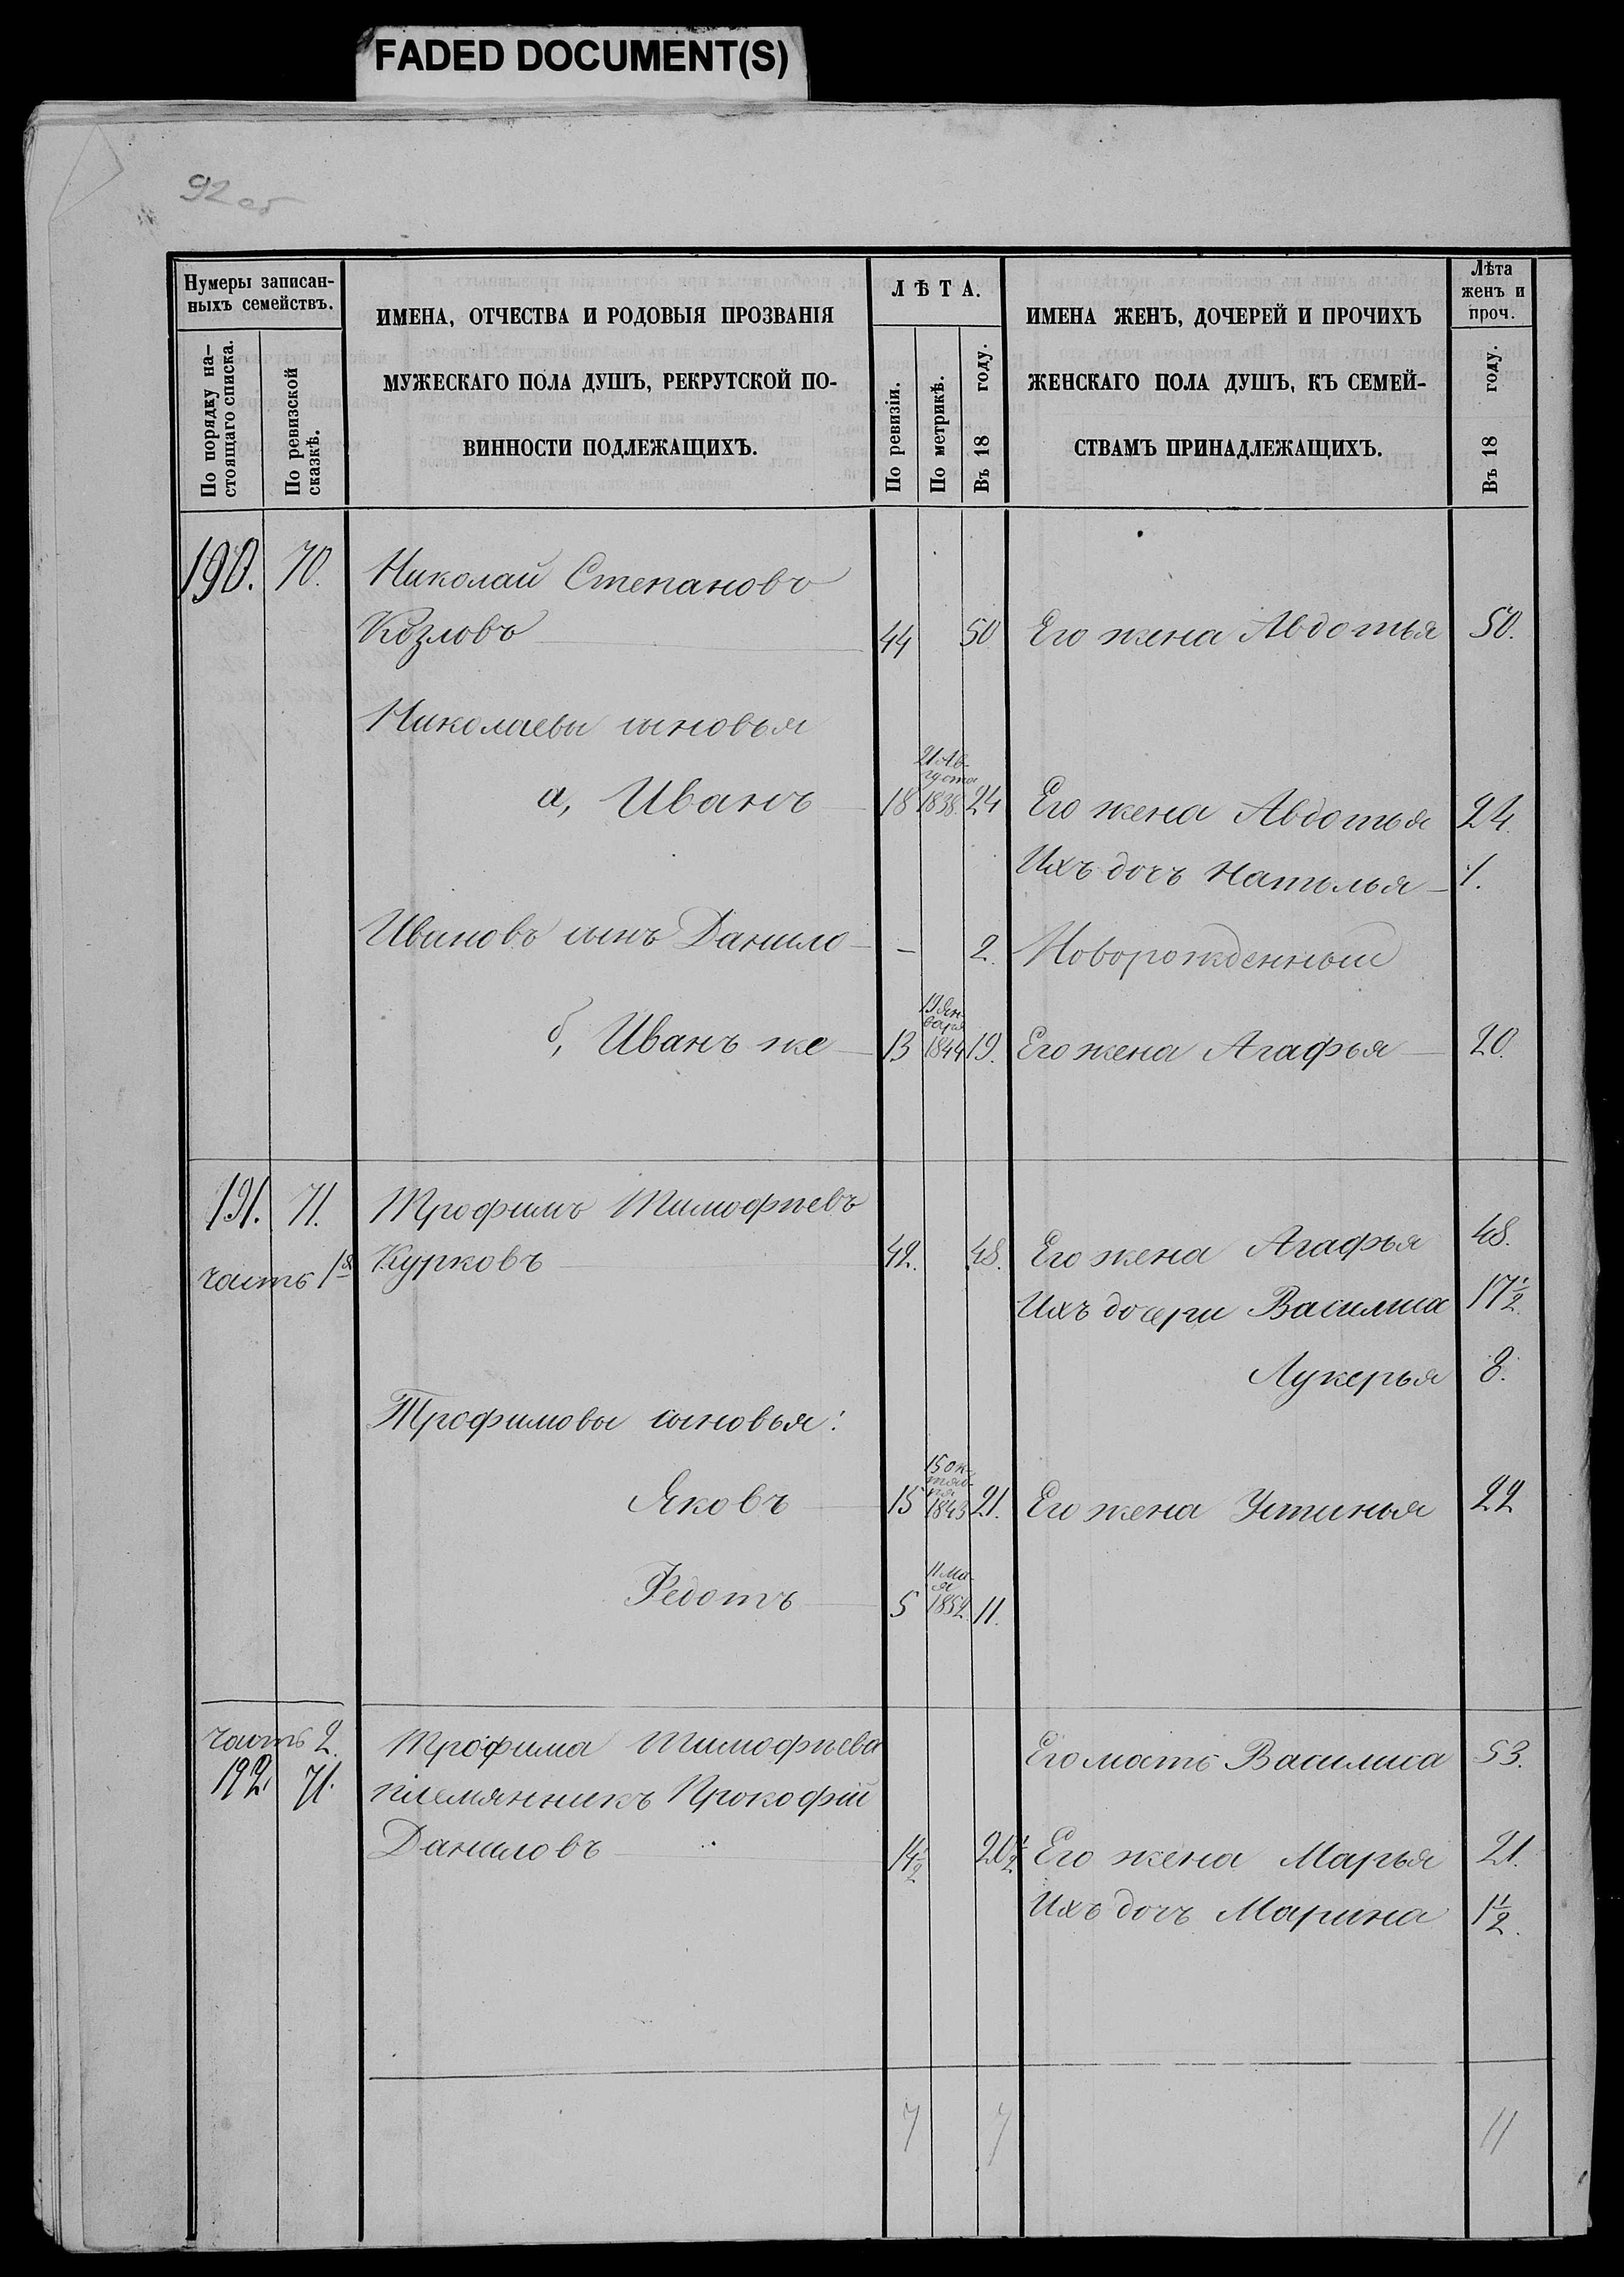 FADED DOCUMENT(S)
92 об
Нумеры записан-
ныхъ семействъ.
По порядку на-
стоящаго списка.
По ревизской
сказкѣ.
ИМЕНА, ОТЧЕСТВА И РОДОВЫЯ ПРОЗВАНІЯ
МУЖЕСКАГО ПОЛА ДУШЪ, РЕКРУТСКОЙ ПО-
ВИННОСТИ ПОДЛЕЖАЩИХЪ.
ЛѢТА.
По ревизіи.
По метрикѣ.
Въ 18 году.
ИМЕНА ЖЕНЪ, ДОЧЕРЕЙ И ПРОЧИХЪ
ЖЕНСКАГО ПОЛА ДУШЪ, КЪ СЕМЕЙ-
СТВАМЪ ПРИНАДЛЕЖАЩИХЪ.
Лѣта
женъ и
проч.
Въ 18 году.
190. 70. Николай Степановъ
Козловъ 44 50 Его жена Авдотья 50.
Николаевы сыновья
21 Ав-
густа
а, Иванъ 18 1838. 24 Его жена Авдотья 24.
Ихъ дочь Наталья 1.
Ивановъ сынъ Данило - 2. Новорожденный
19 Ян-
варя
б, Иванъ же 13 1844 19. Его жена Агафья 20.
191. 71. Трофимъ Тимофѣевъ
часть 1я Курковъ 42. 48. Его жена Агафья 48.
Ихъ дочери Василиса 17 1/2.
Лукерья 8.
Трофимовы сыновья:
15 Ок-
тяб-
ря
Яковъ 15 1843 21. Его жена Устинья 22
11 Ма-
я
Федотъ 5 1852. 11.
часть 2. Трофима Тимофѣева Его мать Василиса 53.
192. 71. племянникъ Прокофій
Даниловъ 14 1/2 20 1/2. Его жена Марья 21.
Ихъ дочь Марина 1 1/2.
7 7 11